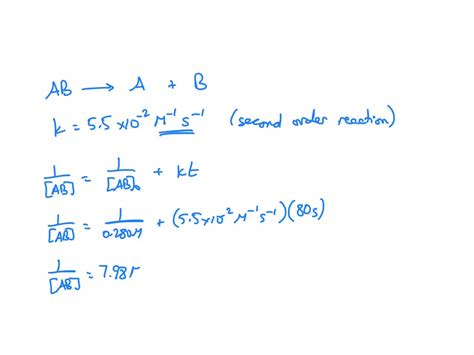 AB ⟶ A + B
k = 5.5×10⁻² M⁻¹ s⁻¹ (second order reaction)
1/[AB] = 1/[AB]₀ + kt
1/[AB] = 1/0.280M + (5.5×10⁻² M⁻¹s⁻¹)(80s)
1/[AB] = 7.98M